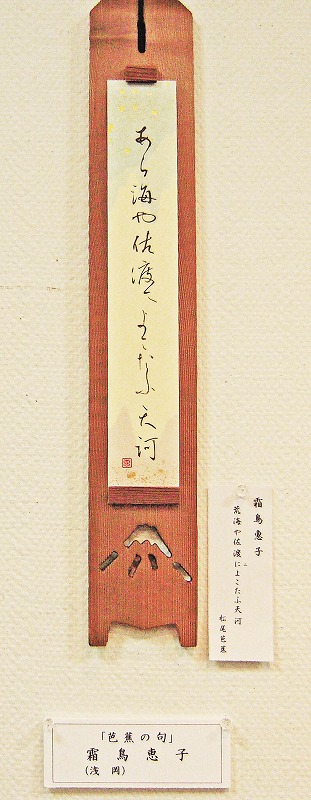 あら海や佐渡によこたふ天河
霜鳥恵子
荒海や佐渡によこたふ天河
松尾芭蕉
「芭蕉の句」
霜鳥恵子
(浅岡)